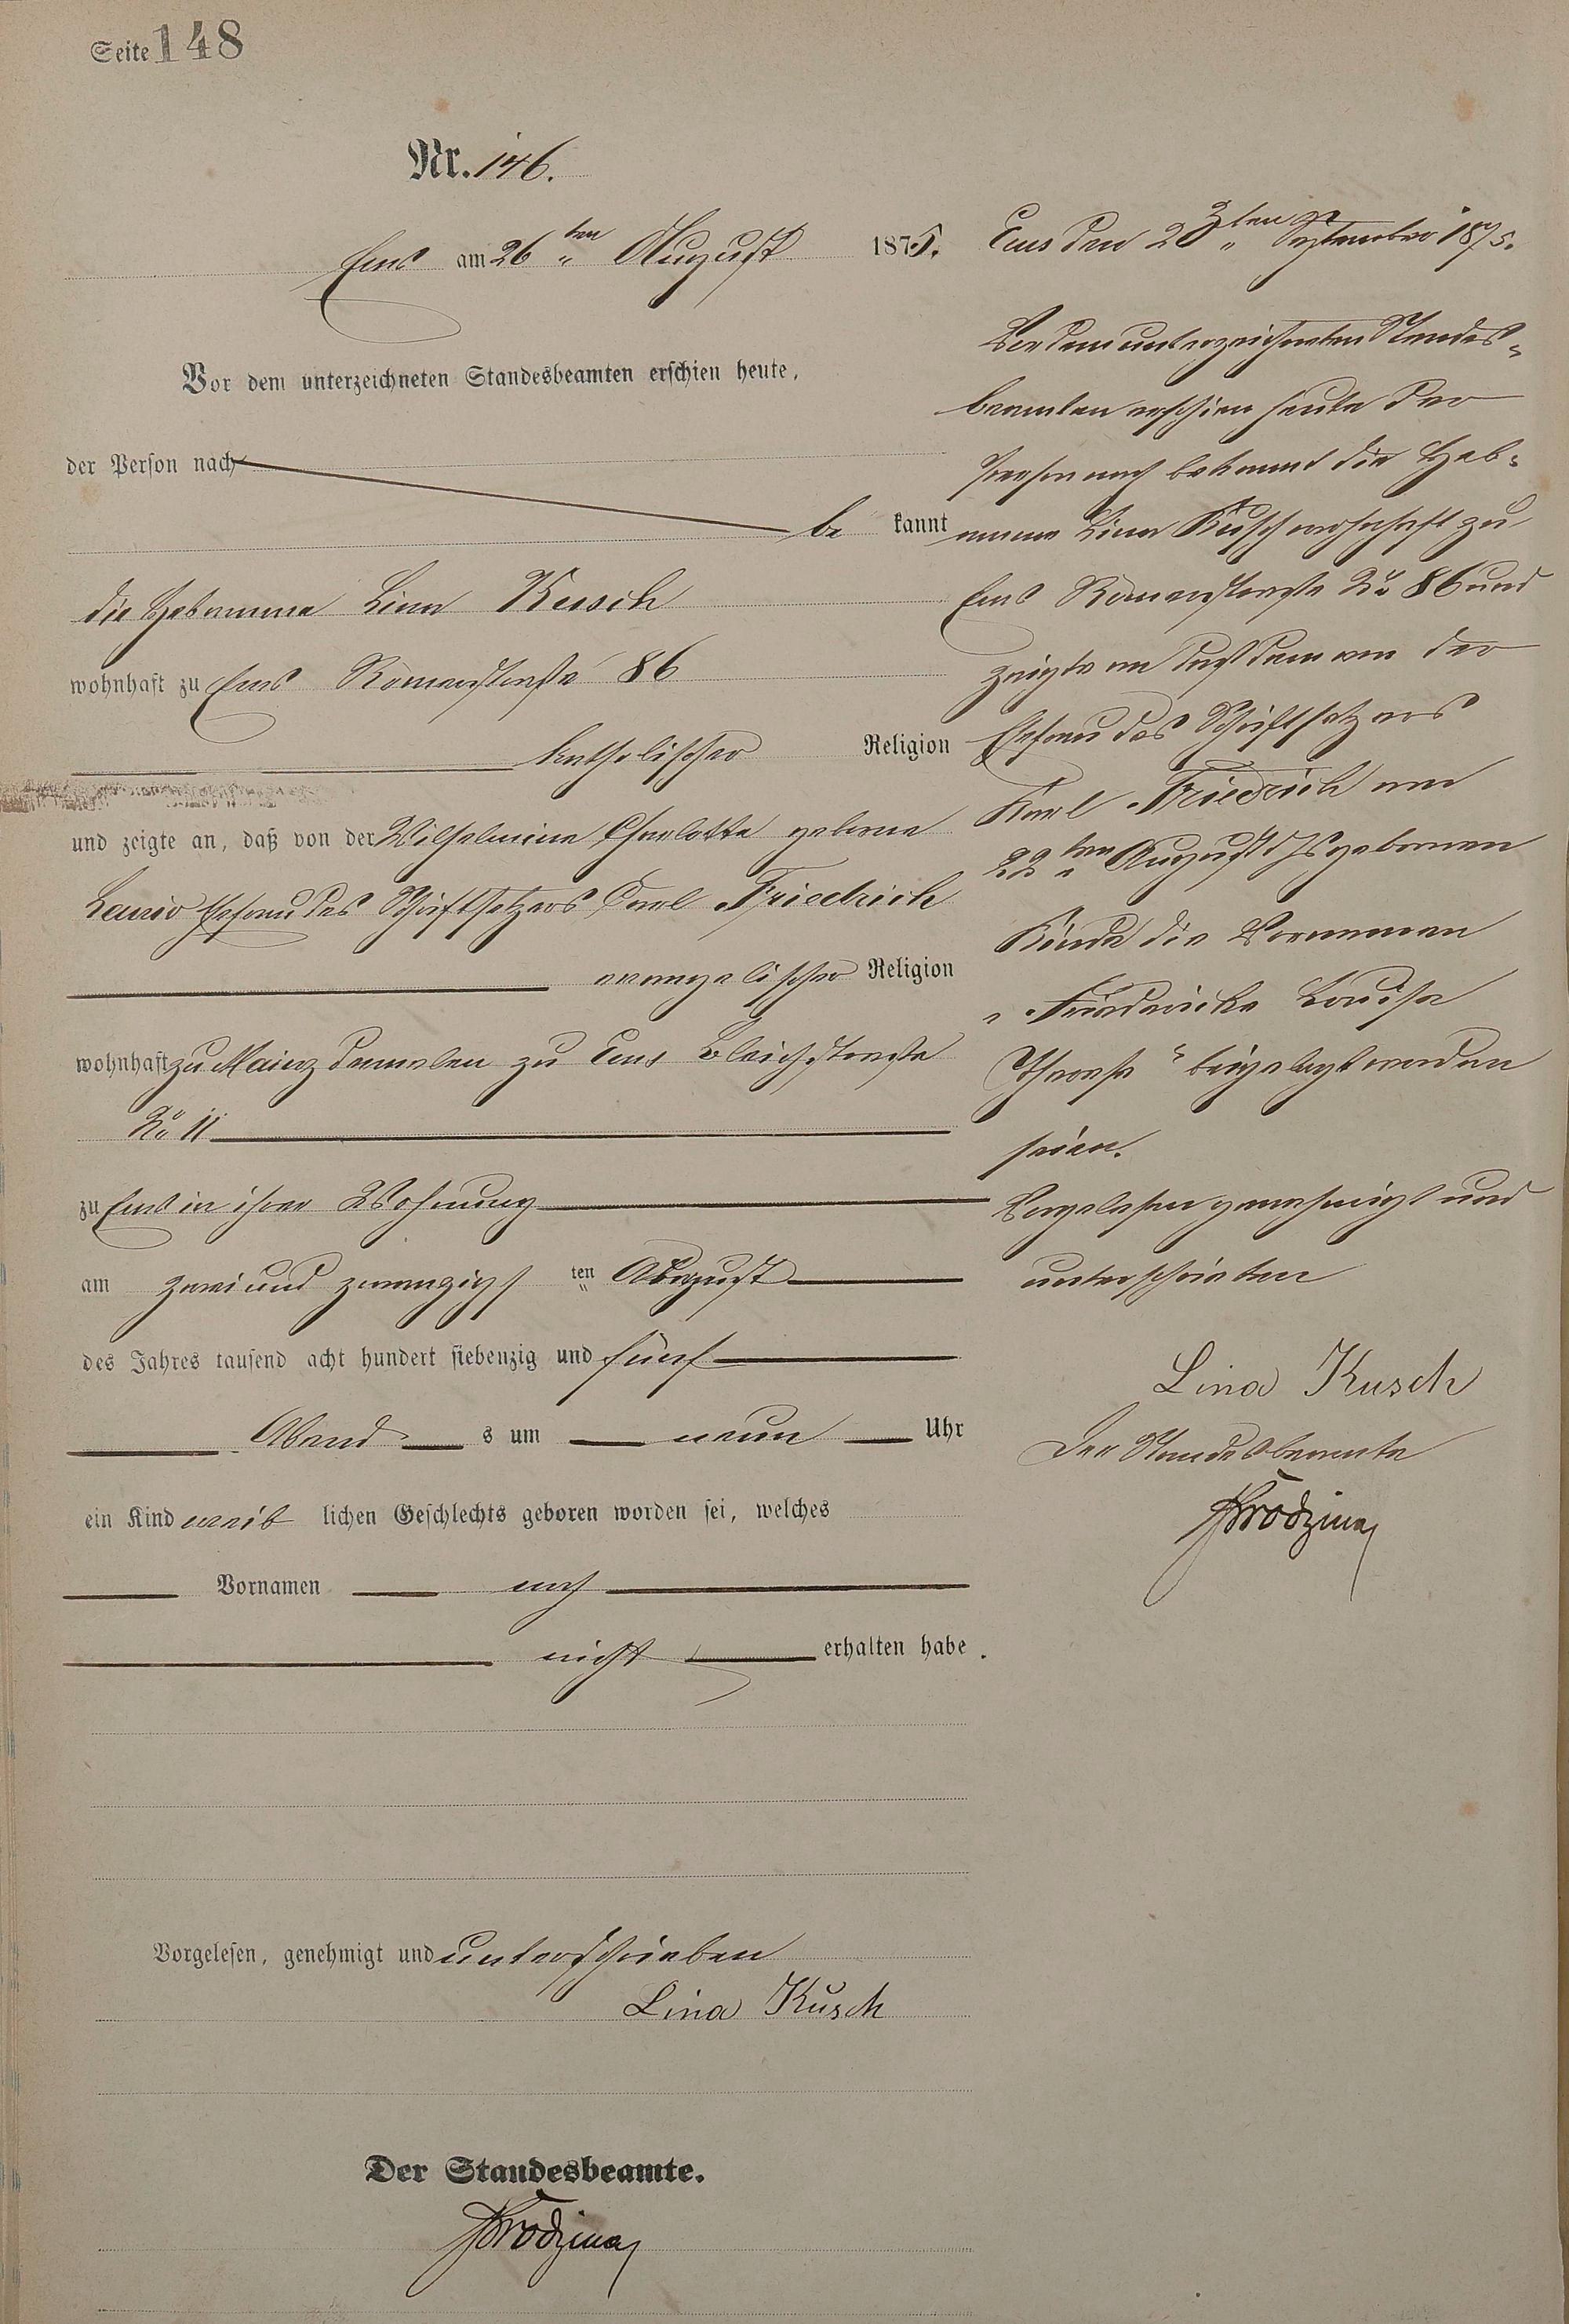 Seite 148
Nr. 146.
Ems am 26ten August 1875.
Vor dem unterzeichneten Standesbeamten erschien heute,
der Person nach
be kannt
die Hebamme Lina Kusch
wohnhaft zu Ems Römerstraße 86
katholischer Religion
und zeigte an, daß von der Wilhelmine Charlotte geborne
Ehefrau des Schriftsetzers Carl Friedrich
evangelischer Religion
wohnhaft zu Mainz dermalen zu Ems Bleichstraße
No 11
zu Ems in ihrer Wohnung
am zwei und zwanzigst ten August
des Jahres tausend acht hundert siebenzig und fünf
Abend s um neun Uhr
ein Kind weib lichen Geschlechts geboren worden sei, welches
Vornamen noch
nicht erhalten habe.
Vorgelesen, genehmigt und unterschrieben
Lina Kusch
Der Standesbeamte.
Ems den 23ten September 1875.
Vor dem unterzeichneten Standes-
beamten erschien heute der
Person nach bekannt die Heb-
amme Lina Kusch wohnhaft zu
Ems Römerstraße No 86 und
zeigte an daß dem von der
Ehefrau des Schriftsetzers
Karl Friedrich am
22ten August d Js gebornen
Kinde die Vornamen
„Friedericke Louise
Therese" beigelegt worden
seien.
Vorgelesen genehmigt und
unterschrieben
Lina Kusch
Der Standesbeamte